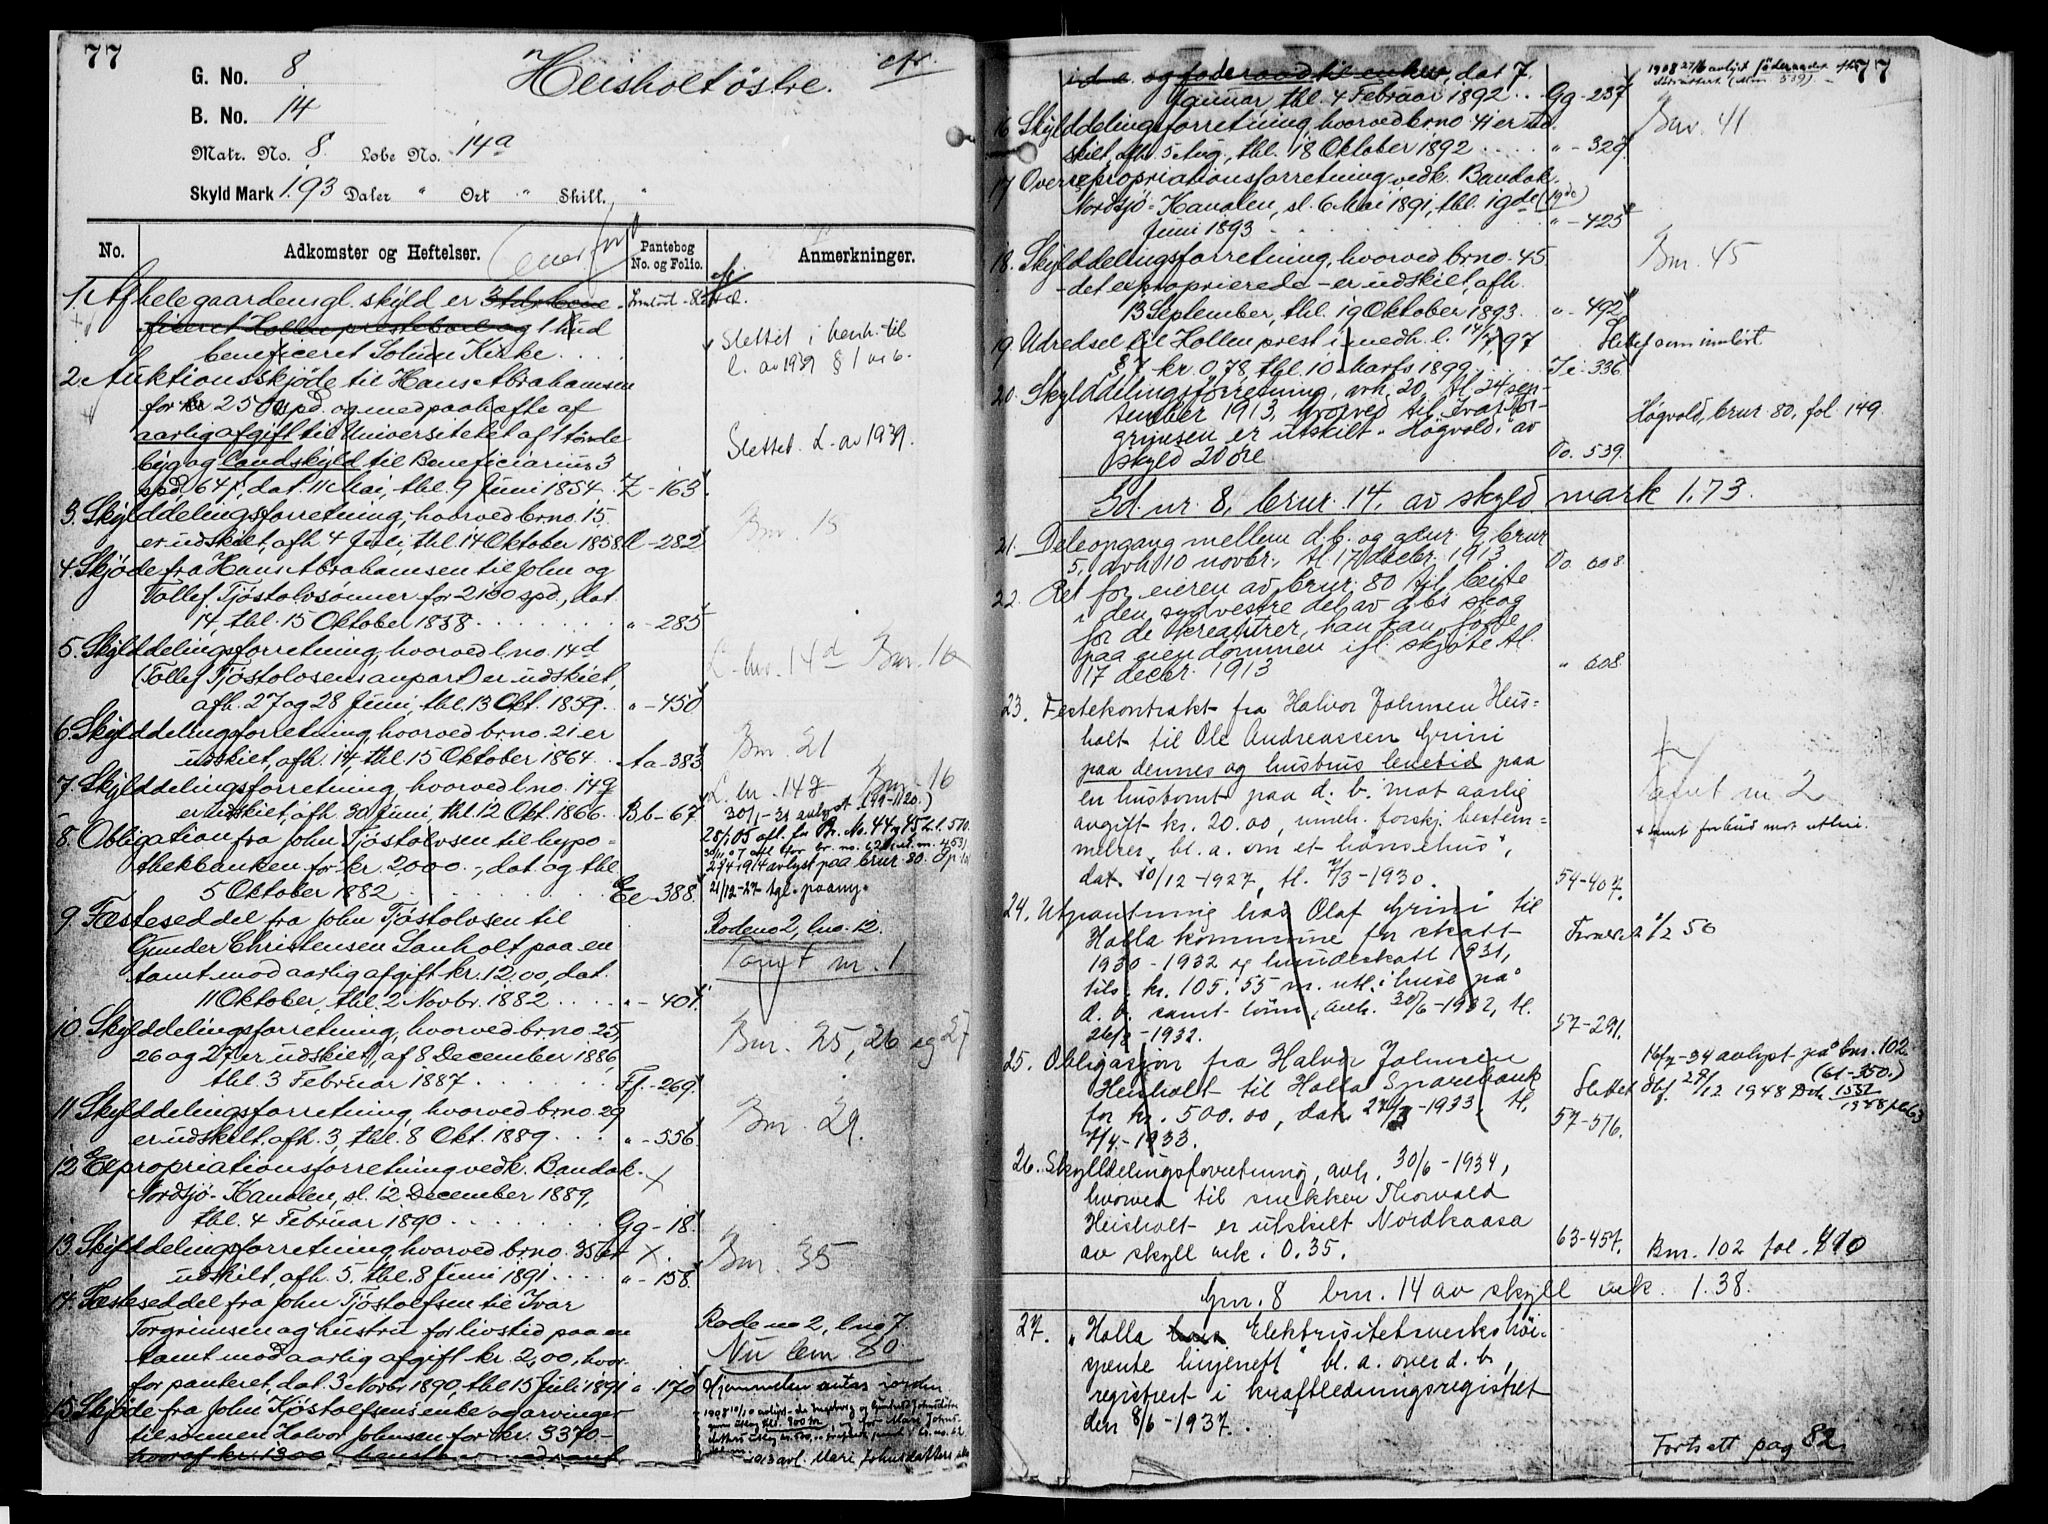 77
G. No. 8
B. No. 14
Matr. No. 8. Løbe No. 14a
Skyld Mark 1.93 Daler " Ort " Skill. "
Heisholt östre.
No.
Adkomster og Heftelser.
Pantebog No. og Folio.
Anmerkninger.
1. Af hele gaardens gl. skyld er
ficeret Hollen prestebol og 1 hud
beneficeret Solum Kirke . . .
Slettet i henh. til
l. av 1939 § 1 og 6.
2. Auktionsskjöde til Hans Abrahamsen
for 2500 spd. og med paahefte af
aarlig afgift til Universitetet af 1 tönde
byg og landskyld til Beneficiarius 3
spd. 64 f, dat. 11 Mai, thl. 9 Juni 1854. Z - 163.
Slettet. L. av 1939.
3. Skylddelingsforretning, hvorved brno. 15
er udskilt, afh. 4 Juli, thl. 14 Oktober 1858. - 282
Bnr. 15
4. Skjöde fra Hans Abrahamsen til John og
Tollef Tjöstolvsönner for 2100 spd., dat.
14, thl. 15 Oktober 1858 . . . " - 285
5. Skylddelingsforretning, hvorved l. no. 14d
(Tollef Tjöstolvsens anpart) er udskilt,
afh. 27 og 28 Juni, thl. 13 Okt. 1859. " - 450
L. bnr. 14d Bnr. 16
6. Skylddelingsforretning hvorved brno. 21 er
udskilt, afh. 14, thl. 15 Oktober 1864. . Aa - 383
Bnr. 21
7. Skylddelingsforretning, hvorved l. no. 14g
er udskilt, afh. 30 Juni, thl. 12 Okt. 1866. Bb - 67
8. Obligation fra John Tjöstolvsen til hypo-
thekbanken for kr. 2000 -, dat. og thl.
5 Oktober 1882 . . . Ee - 388.
9. Fæsteseddel fra John Tjöstolvsen til
Gunder Christensen Lanholt paa en
tomt mod aarlig afgift kr. 12,00, dat.
11 Oktober, thl. 2 Novbr. 1882 . . . " - 401.
Rodeno 2, lno. 12.
Tomt nr. 1
10. Skylddelingsforretning, hvorved brno. 25,
26 og 27 er udskilt, af 8 December 1886,
thl. 3 Februar 1887 . . . Ff. - 269.
Bnr. 25, 26 og 27
11. Skylddelingsforretning, hvorved brno. 29
er udskilt, afh. 3, thl. 8 Okt. 1889. . . " - 556
Bnr. 29.
12. Expropriationsforretning vedk. Bandak-
Nordsjö-Kanalen, sl. 12 December 1889,
thl. 4 Februar 1890 . . . Gg - 18.
13. Skylddelingsforretning hvorved brno. 35 er
udskilt, afh. 5, thl. 8 Juni 1891 . . . " - 158.
Bnr. 35
14. Fæsteseddel fra John Tjöstolfsen til Ivar
Torgrimsen og hustru for livstid paa en
tomt mod aarlig afgift kr. 2,00, hvor-
for panteret, dat. 3 Novbr 1890, thl. 15 Juli 1891 " - 170
Rode no 2, lno 7.
Nu bnr. 80.
15. Skjöde fra John Tjöstolfsens enke og arvinger
til sönnen Halvor Johnsen for kr. 3370 -
hvoraf kr. 1300
77
ida og föderaad til enken, dat 7.
Januar, thl. 4 Februar 1892 . . . Gg - 237
16 Skylddelingsforretning, hvorved brno 41 er ud-
skilt, afh. 5 Aug., thl. 18 Oktober 1892 . . . " - 327
Bnr. 41
17 Overexpropriationsforretning vedk. Bandak-
Nordsjö-Kanalen, sl. 6 Mai 1891, thl. 19de (19de)
Juni 1893 . . . " - 425
18. Skylddelingsforretning, hvorved brno. 45
- det exproprierede - er udskilt, afh.
13 September, thl. 19 Oktober 1893. . . " - 492
Bnr. 45
19. Udredsel til Hollen prest i medh. l. 14/7 97
§ 7 kr. 0,78, thl. 10 Marts 1899. . . Ii - 336
Slettet som innlöst
20. Skylddelingsforretning, avh. 20, tl. 24 sep-
tember 1913, hvorved til Ivar Tor-
grimsen er utskilt "Högvold" av
skyld 20 öre Oo. 539.
Högvold, brnr. 80, fol. 149.
Gd. nr. 8, brnr. 14, av skyld mark 1.73.
21. Deleopgang mellem d. b. og gdnr. 9, brnr
5, avh. 10 novbr., tl. 17 decbr. 1913 Oo 608.
22. Ret for eieren av brnr. 80 til beite
i den sydvestre del av d. bs skog
for de kreaturer, han kan föde
paa eiendommen ifl. skjöte tl.
17 decbr. 1913 " 608.
23. Festekontrakt fra Halvor Johnsen Heis-
holt til Ole Andreassen Grini
paa dennes og hustrus levetid paa
en hustomt paa d. b. mot aarlig
avgift kr. 20.00, inneh. forskj. bestem-
melser, bl. a. om et hönsehus,
dat. 10/12 - 1927, tl. 7/3 - 1930. 54 - 407.
Tomt nr. 2
24. Utpantning hos Olaf Grini til
Holla kommune for skatt
1930 - 1932 og hundeskatt 1931,
tils. kr. 105.55 m. utl. i huse på
d. b. samt lönn, avh. 30/6 - 1932, tl.
26/8 - 1932. 57 - 291.
25. Obligasjon fra Halvor Johnsen
Heisholt til Holla Sparebank
for kr. 500.00, dat. 27/3 - 1933, tl.
7/4 - 1933. 57 - 576.
16/7 - 34 avlyst på bnr. 102
(61 - 350.)
26. Skylddelingsforretning, avh. 30/6 - 1934,
hvorved til snekker Thorvald
Heisholt er utskilt Nordkaasa
av skyll mk. 0.35. 63 - 457.
Bnr. 102 fol.
Gnr. 8 bnr. 14 av skyll mk. 1.38.
27. "Holla Elektrisitetsverks höi-
spente linjenett" bl. a. over d. b.,
registrert i kraftledningsregistret
den 8/6 - 1937.
Fortsett pag 82.